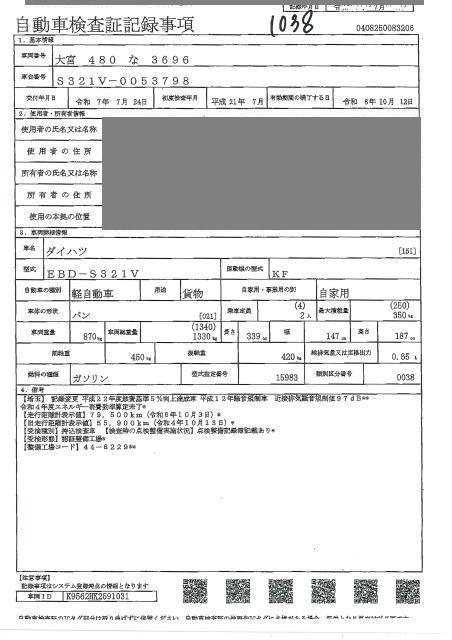 自動車検査証記録事項
1038
0408250083206
1. 基本情報
車両番号 大宮 480 な 3696
車台番号 S321V-0053798
交付年月日 令和 7年 7月 24日 初度検査年月 平成 21年 7月 有効期間の満了する日 令和 6年 10月 12日
2. 使用者・所有者情報
使用者の氏名又は名称
使用者の住所
所有者の氏名又は名称
所有者の住所
使用の本拠の位置
3. 車両詳細情報
車名 ダイハツ [151]
型式 EBD-S321V 原動機の型式 KF
自動車の種別 軽自動車 用途 貨物 自家用・事業用の別 自家用
車体の形状 バン [021] 乗車定員 (4) 2人 最大積載量 (250) 350kg
車両重量 870kg 車両総重量 (1340) 1330kg 長さ 339cm 幅 147cm 高さ 187cm
前軸重 450kg 後軸重 420kg 総排気量又は定格出力 0.65L
燃料の種類 ガソリン 型式指定番号 15983 類別区分番号 0038
4. 備考
【埼玉】 記録変更 平成22年度燃費基準5%向上達成車 平成12年騒音規制車 近接排気騒音規制値97dB**
令和4年度エネルギー消費効率算定未了*
【走行距離計表示値】79,500km（令和6年10月3日）*
【旧走行距離計表示値】55,900km（令和4年10月13日）*
【受検種別】持込検査車 【検査時の点検整備実施状況】点検整備記録簿記載あり*
【受検形態】認証整備工場*
【整備工場コード】44-6229**
【注意事項】
記録事項はシステム登録時点の情報となります
車両ID K9562HK2591031